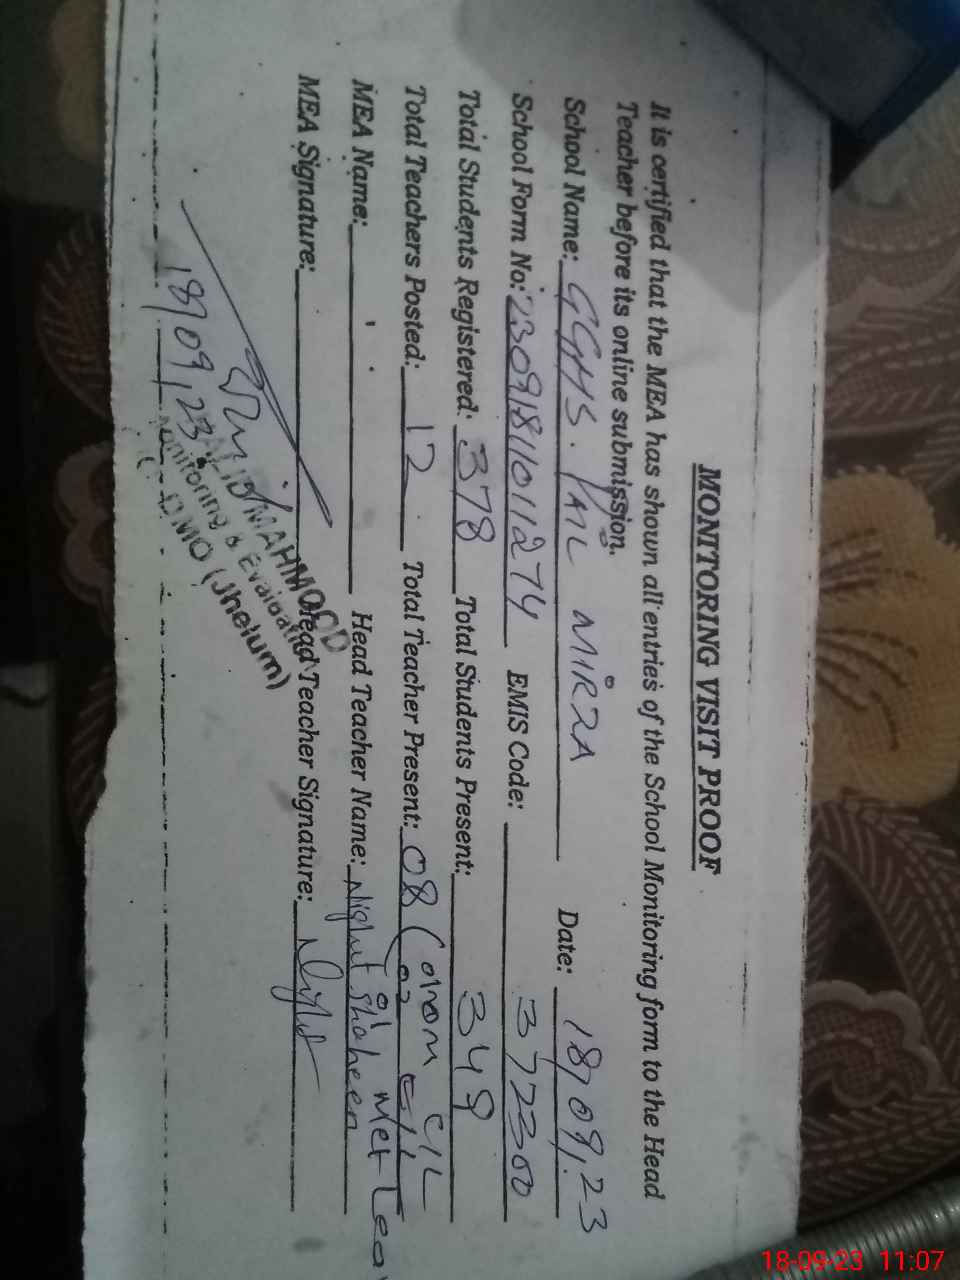 MONITORING VISIT PROOF
It is certified that the MEA has shown all entries of the School Monitoring form to the Head
Teacher before its online submission.
School Name: GGHS. PAIL MIRZA Date: 18,09,23
School Form No: 23091811011274 EMIS Code: 37230
Total Students Registered: 378 Total Students Present: 349
Total Teachers Posted: 12 Total Teacher Present: 08 (
MEA Name: Head Teacher Name: Nighut Shaheen
MEA Signature: Head Teacher Signature:
MAHMOOD
Monitoring & Evaluation
DMO (Jhelum)
18,09,23
18-09-23 11:07